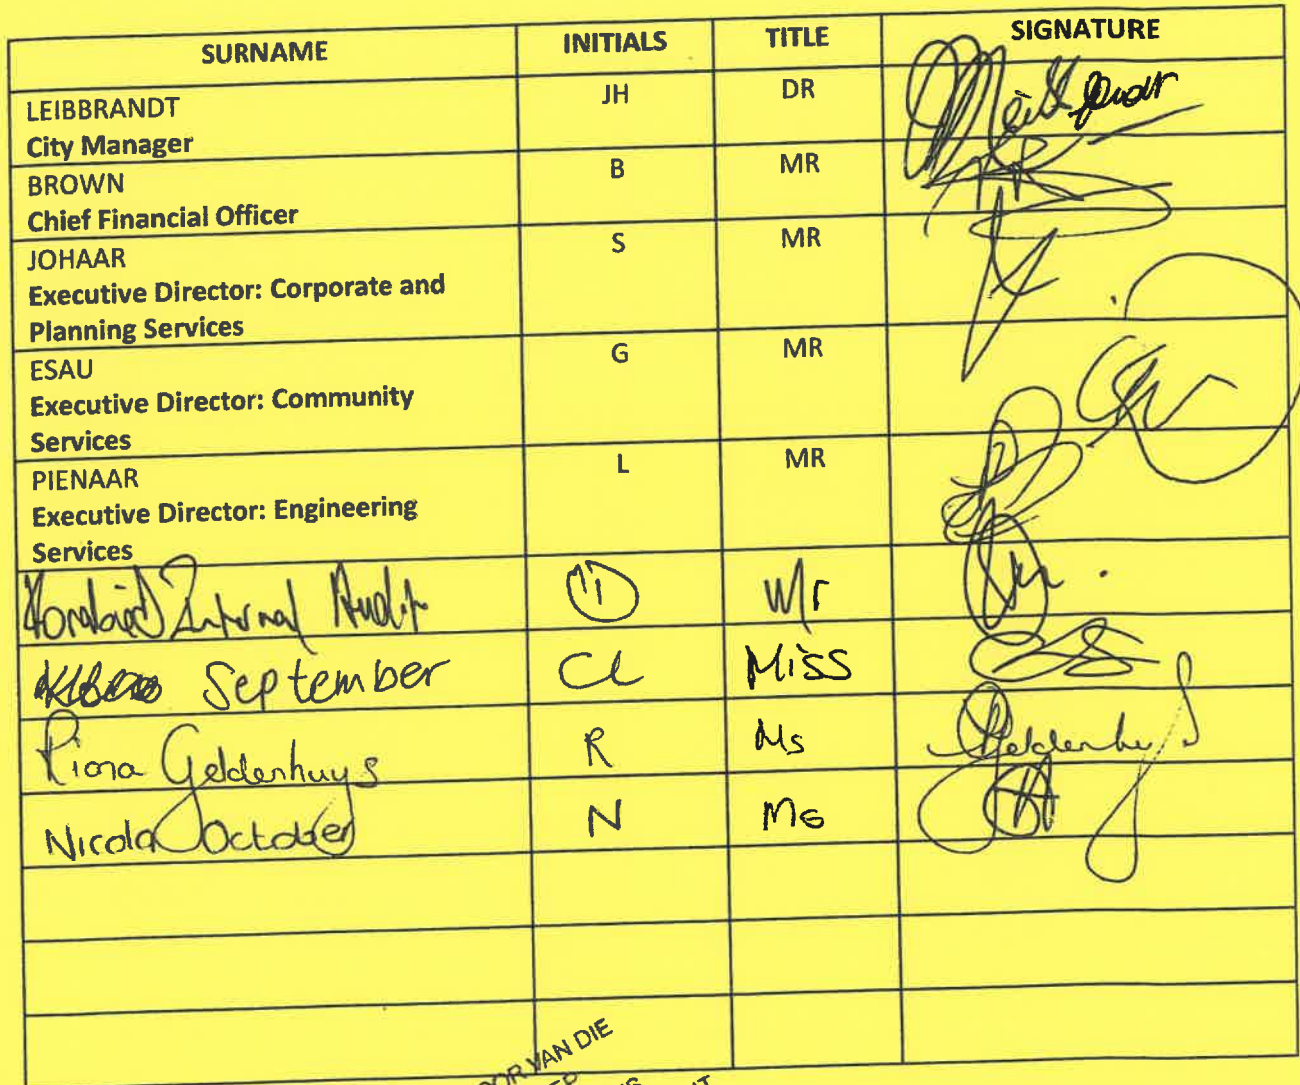 SURNAME INITIALS TITLE SIGNATURE
LEIBBRANDT JH DR
City Manager
BROWN B MR
Chief Financial Officer
JOHAAR S MR
Executive Director: Corporate and
Planning Services
ESAU G MR
Executive Director: Community
Services
PIENAAR L MR
Executive Director: Engineering
Services
Internal Audit Mr
September CL Miss
Riona Geldenhuys R Ms Geldenhuys
Nicola October N Ms
VAN DIE